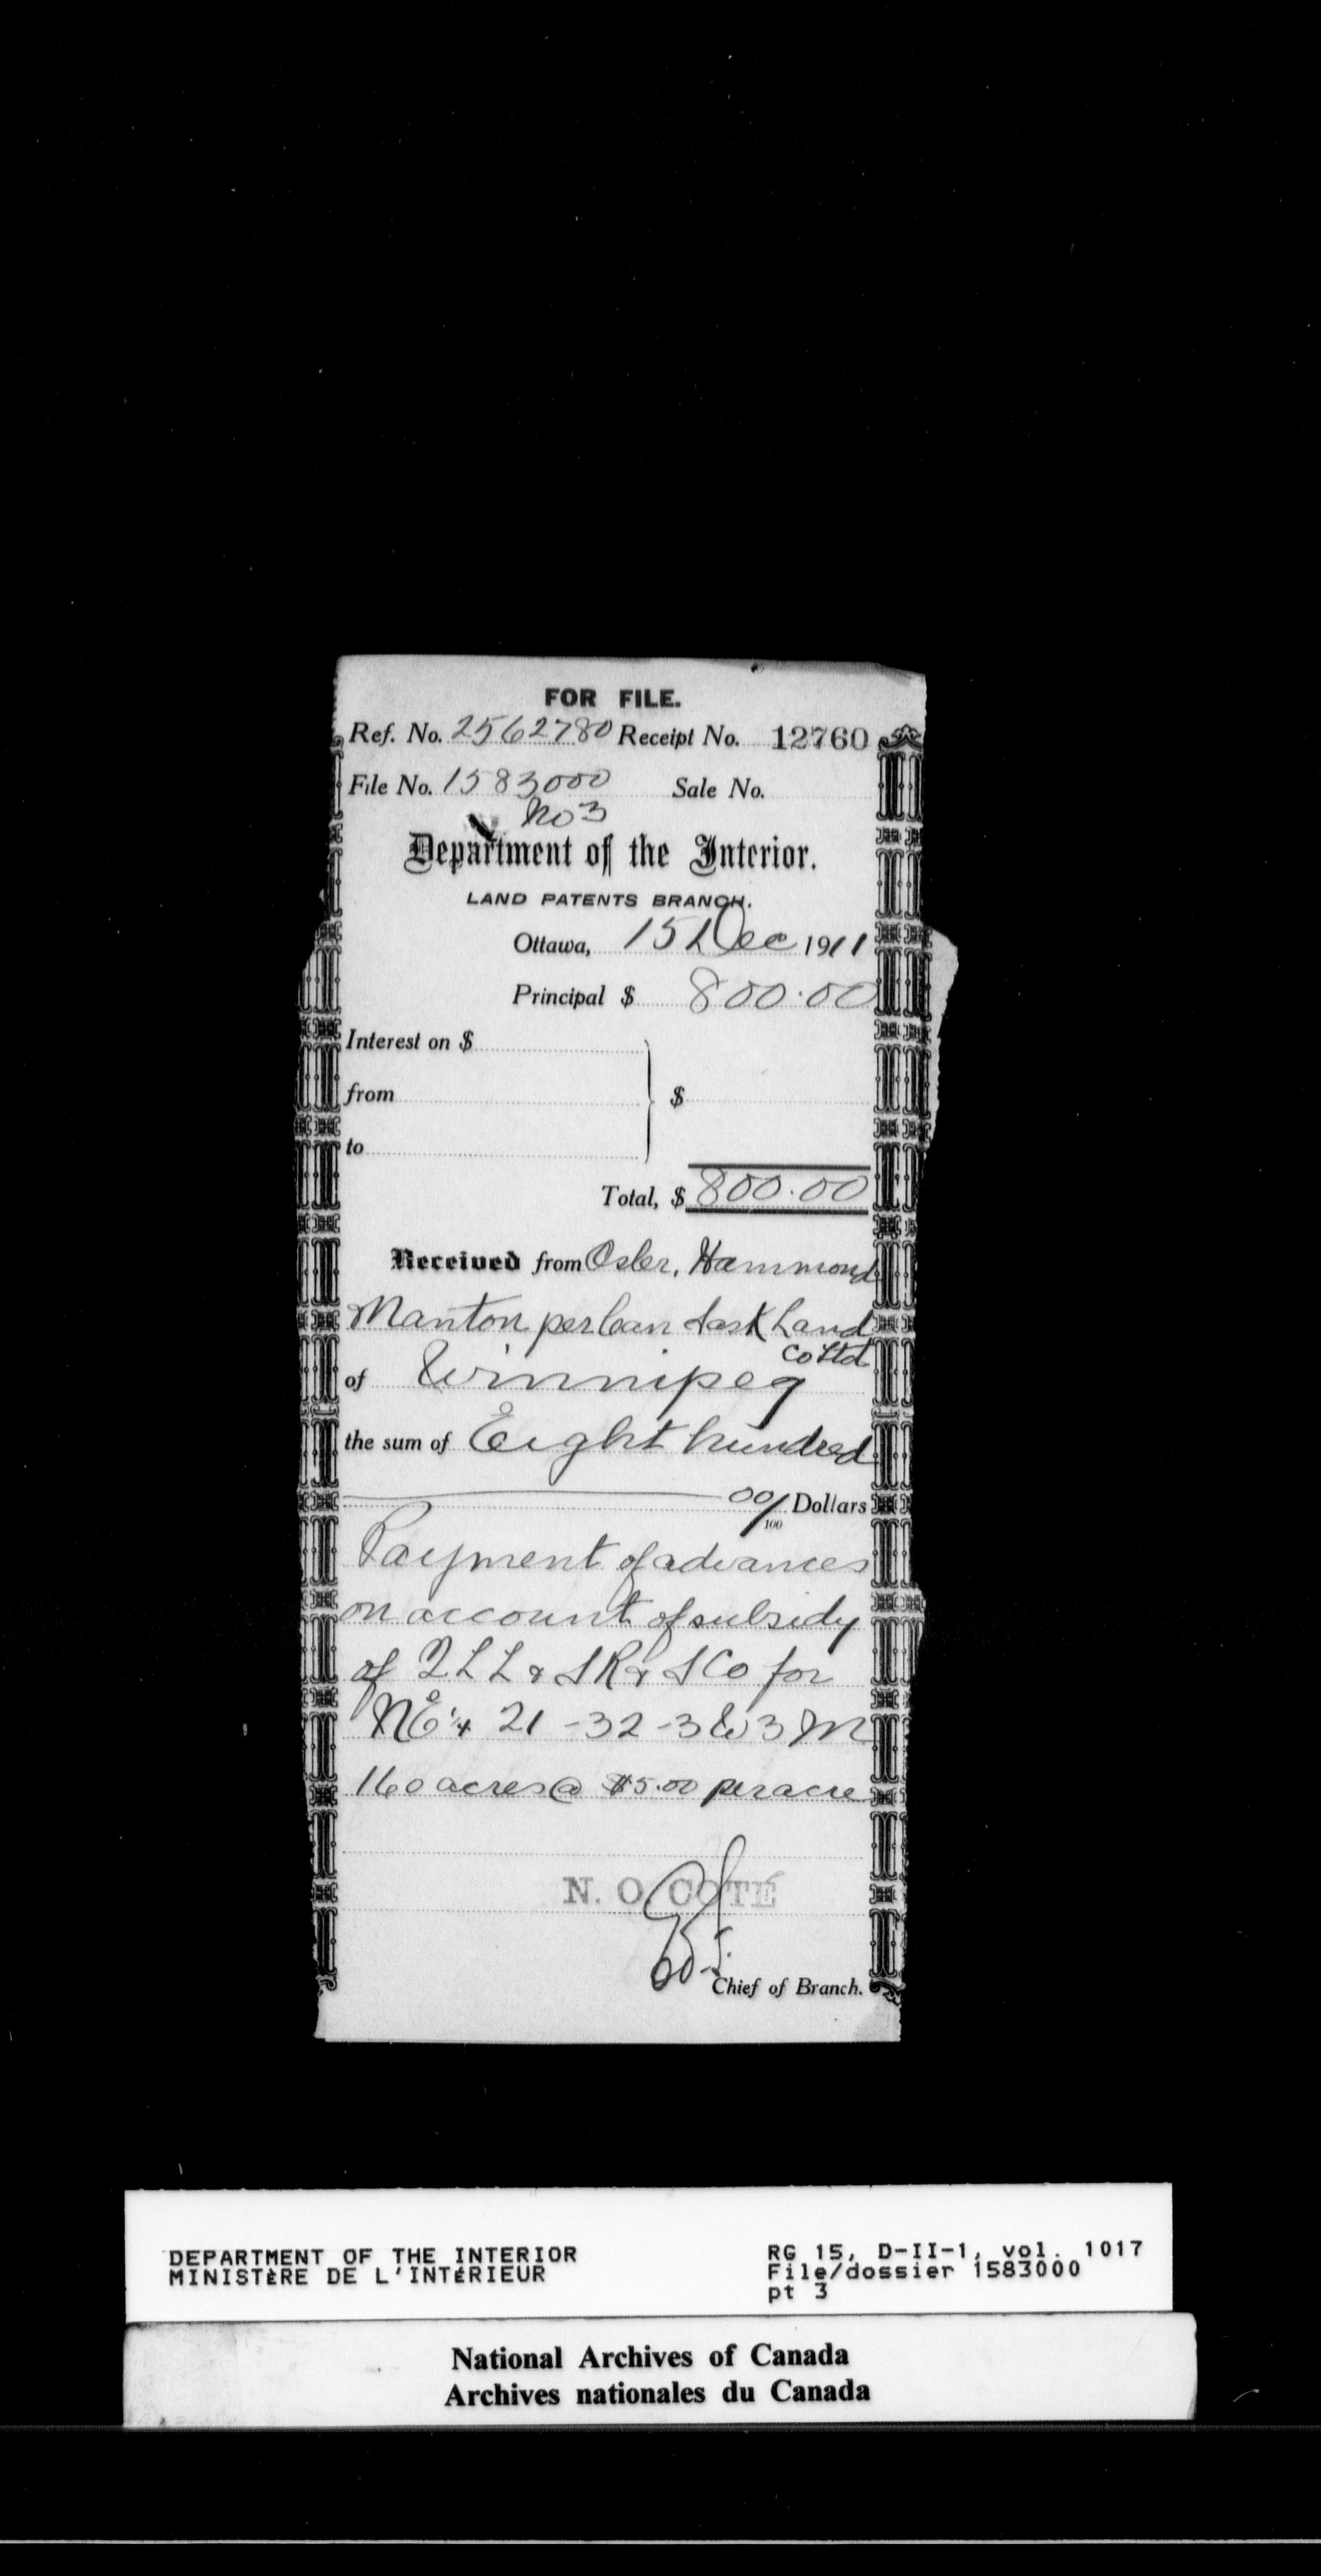 FOR FILE.
Ref. No. 2562780 Receipt No. 12760
File No. 1583000 Sale No.
No 3
Department of the Interior.
LAND PATENTS BRANCH.
Ottawa, 15 Dec 1911
Principal $ 800.00
Interest on $
from $
to
Total, $ 800.00
Received from Osler, Hammond
Manton per Can Sask Land
Co Ltd
of Winnipeg
the sum of Eight hundred
00/100 Dollars
Payment of advances
on account of subsidy
of Q L L & S R & S Co for
NE 1/4 21-32-3 W 3 M
160 acres @ $5.00 per acre
N. O. COTÉ
Chief of Branch.
DEPARTMENT OF THE INTERIOR
MINISTÈRE DE L'INTÉRIEUR
RG 15, D-II-1, vol. 1017
File/dossier 1583000
pt 3
National Archives of Canada
Archives nationales du Canada